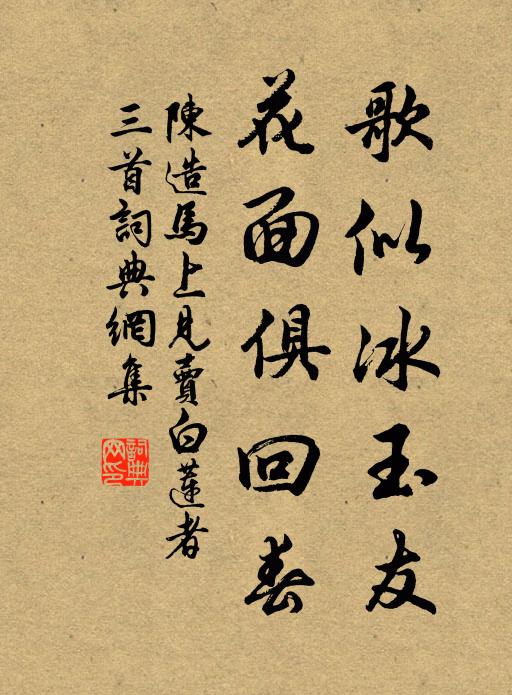 歌似冰玉友
花面俱回春
陳造馬上見賣白蓮者
三首詞典網集
詞典
网印